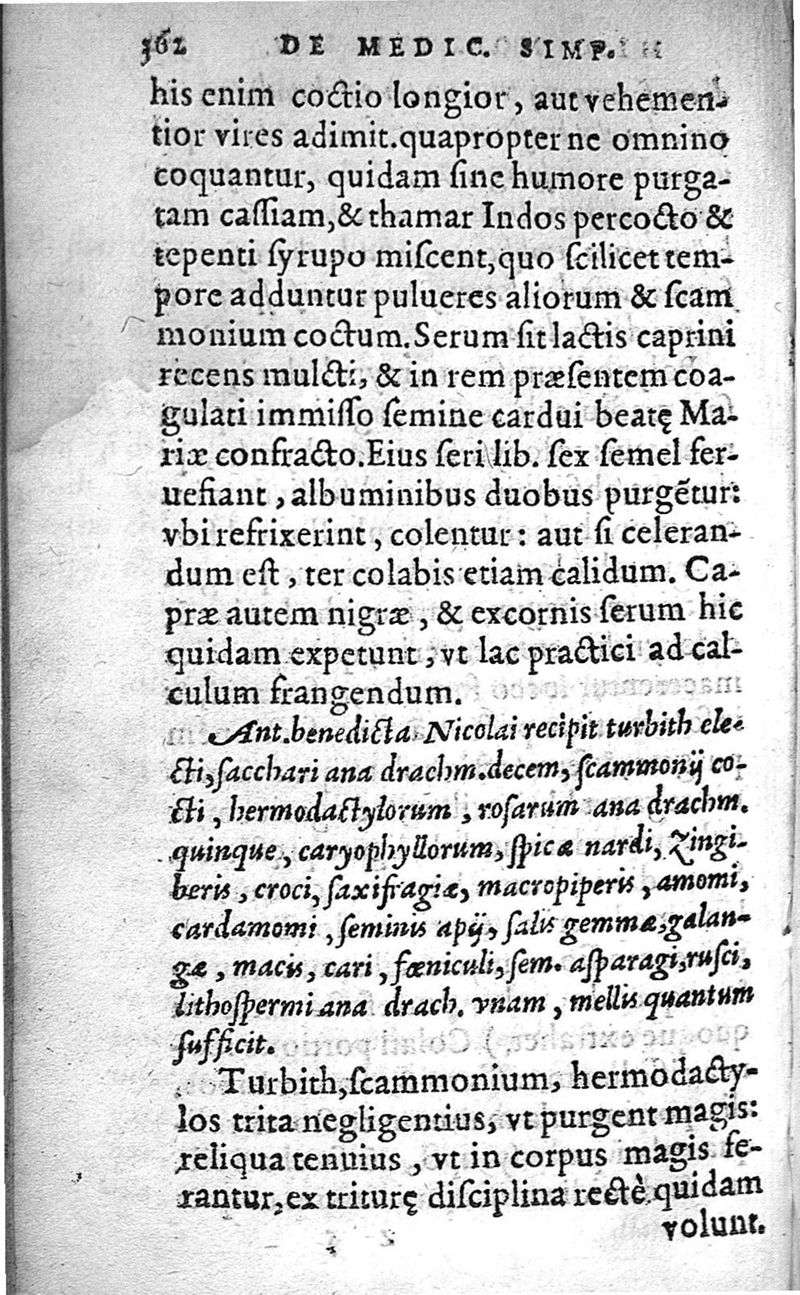 362 DE MEDIC. SIMP.
his enim coctio longior, aut vehemen-
tior vires adimit. quapropter ne omnino
coquantur, quidam ſine humore purga-
tam caſſiam, & thamar Indos percocto &
tepenti ſyrupo miſcent, quo ſcilicet tem-
pore adduntur pulueres aliorum & ſcam
monium coctum. Serum ſit lactis caprini
recens mulcti, & in rem præſentem coa-
gulati immiſſo ſemine cardui beatę Ma-
riæ confracto. Eius ſeri lib. ſex ſemel fer-
uefiant, albuminibus duobus purgẽtur:
vbi refrixerint, colentur: aut ſi celeran-
dum eſt, ter colabis etiam calidum. Ca-
præ autem nigræ, & excornis ſerum hic
quidam expetunt, vt lac practici ad cal-
culum frangendum.
Ant. benedicta Nicolai recipit turbith ele-
cti, ſacchari ana drachm. decem, ſcammonij co-
cti, hermodactylorum, roſarum ana drachm.
quinque, caryophyllorum, ſpicæ nardi, Zingi-
beris, croci, ſaxifragiæ, macropiperis, amomi,
cardamomi, ſeminis apij, ſalis gemmæ, galan-
gæ, macis, cari, fœniculi, ſem. aſparagi, ruſci,
lithoſpermi ana drach. vnam, mellis quantum
ſufficit.
Turbith, ſcammonium, hermodacty-
los trita negligentius, vt purgent magis:
reliqua tenuius, vt in corpus magis fe-
rantur, ex triturę diſciplina rectè quidam
volunt.